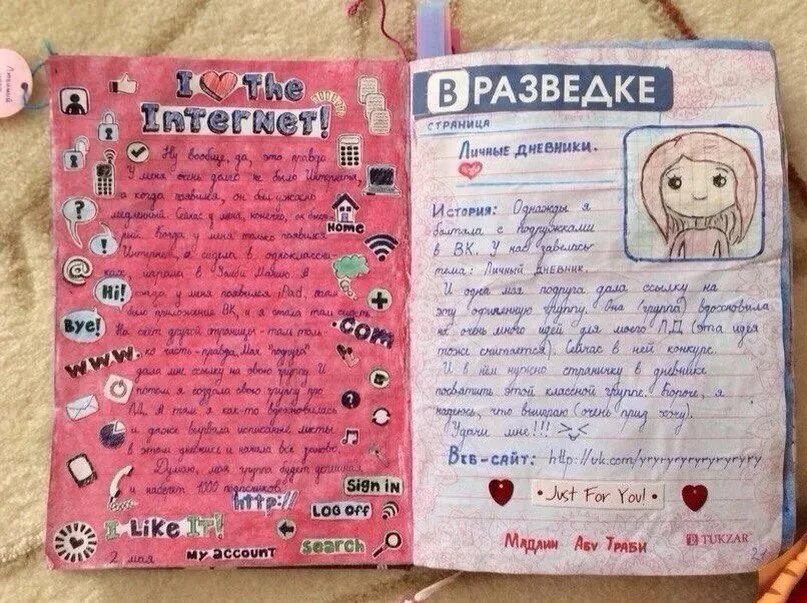 I The
Internet!
Ну вообще, да, это правда
У меня очень долго не было Интернета,
а когда появился, он был ужасно
медленный. Сейчас у меня, конечно, он быст-
рый. Когда у меня только появился
Интернет, я сидела в одноклассни-
ках, играла в Зомби
когда у меня появился iPad, там
было приложение ВК, и я стала там сидеть
На счёт другой страницы - там толь-
ко часть - правда. Моя "подруга"
дала мне ссылку на свою группу. И
потом я создала свою группу про
ЛД. А там я как-то вдохновилась
и даже вырвала исписанные листы
в этом дневнике и начала всё заново.
Думаю, моя группа будет успешная
и наберёт 1000 подписчиков.
?
!
@
Hi!
Bye!
www.
Home
.com
?
http://
Sign in
Log off
I Like It!
My account
search
2 мая
В РАЗВЕДКЕ
СТРАНИЦА
Личные дневники.
История: Однажды я
болтала с подружками
в ВК. У нас завелась
тема: Личный Дневник.
И одна моя подруга дала ссылку на
эту офигенную группу. Она (группа) вдохновила
на очень много идей для моего ЛД (эта идея
тоже считается). Сейчас в ней конкурс.
И в нём нужно страничку в дневнике
посвятить этой классной группе. Короче, я
надеюсь, что выиграю (очень приз хочу).
Удачи мне!!! >_<
Веб-сайт: http://vk.com/yryryryryryryryry
• Just For You! •
Мадлин Абу Траби
TUKZAR
21